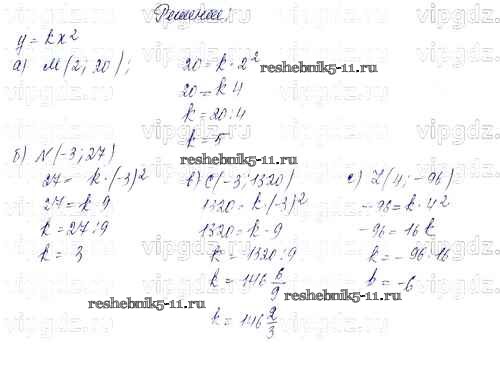 Решение:
y = kx²
а) M(2; 20);
20 = k · 2²
20 = k 4
k = 20 : 4
k = 5
б) N(-3; 27)
27 = k · (-3)²
27 = k · 9
k = 27 : 9
k = 3
в) C(-3; 1320)
1320 = k · (-3)²
1320 = k · 9
k = 1320 : 9
k = 146 6/9
k = 146 2/3
г) L(4; -96)
-96 = k · 4²
-96 = 16k
k = -96 : 16
k = -6
reshebnik5-11.ru
reshebnik5-11.ru
reshebnik5-11.ru
reshebnik5-11.ru
vipgdz.ru